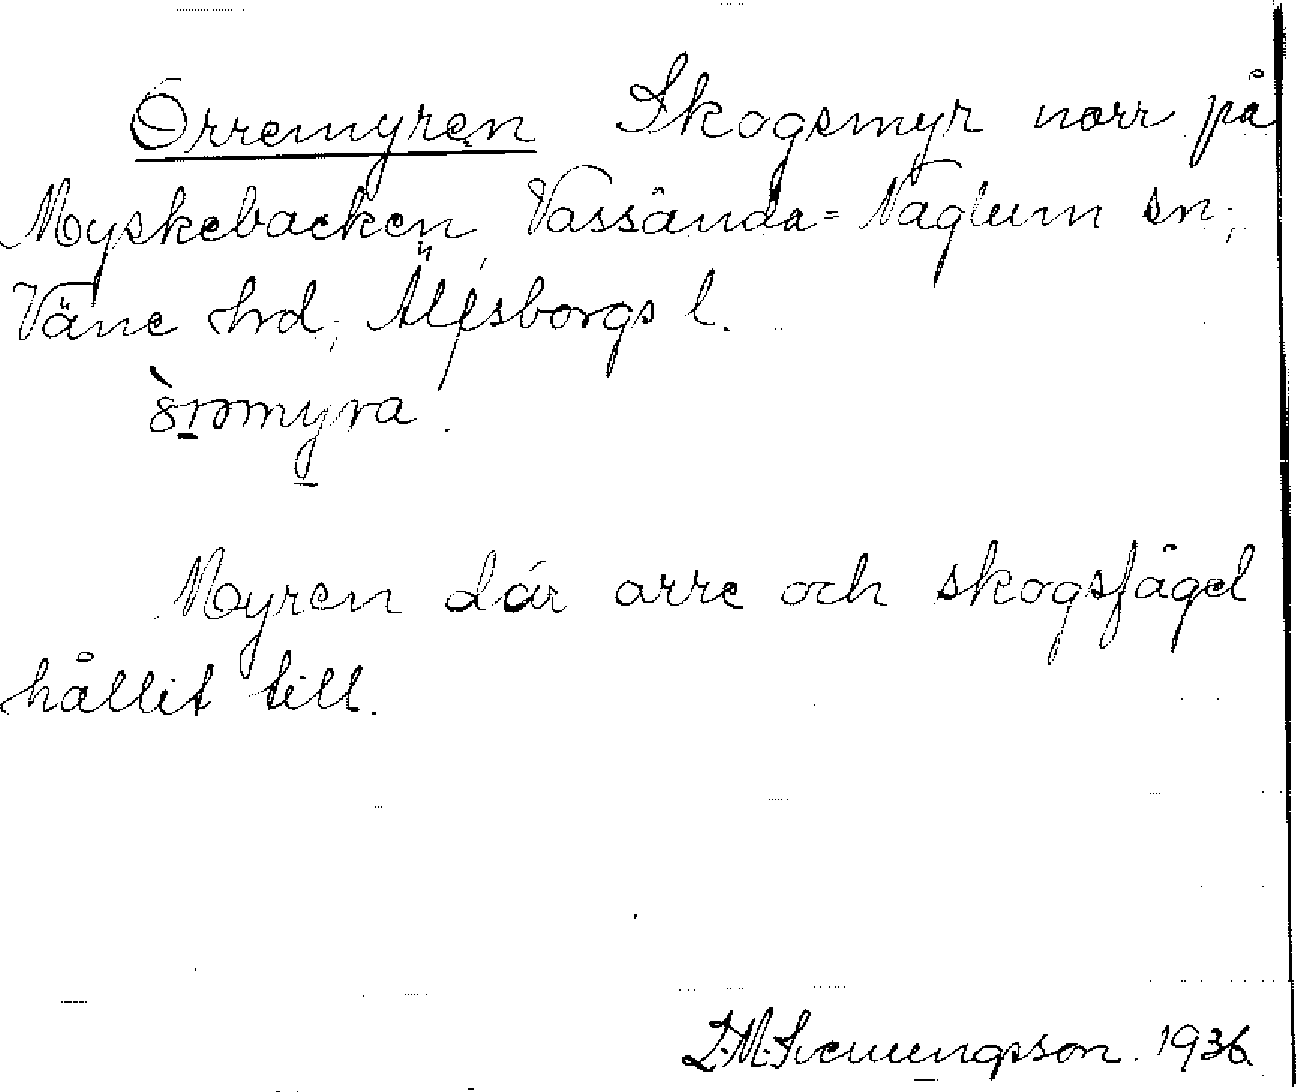 Orremyren Skogsmyr norr på
Myskebacken, Vassända-Naglum sn;
Väne hrd; Älfsborgs l.
Myren där orre och skogsfågel
hållit till.
1936